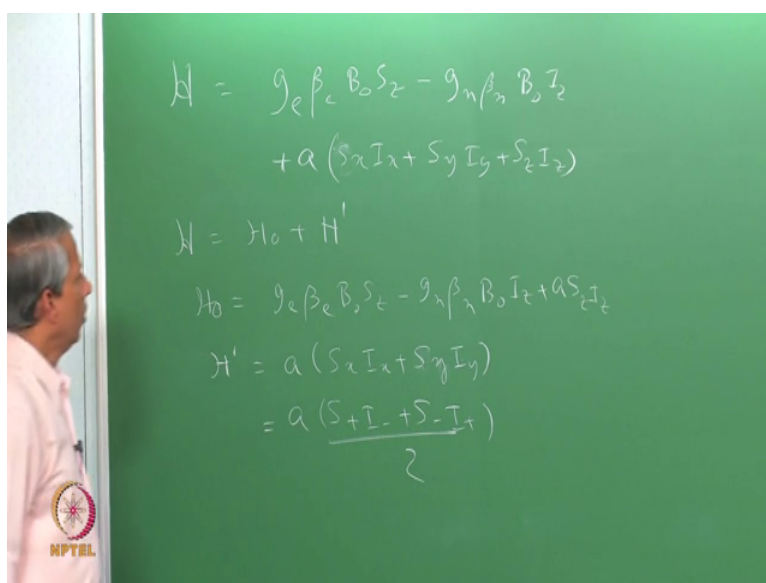 H = gₑβₑ B₀S_z − gₙβₙ B₀I_z
+ a (SxIx + SyIy + SzIz)
H = H₀ + H'
H₀ = gₑβₑB₀S_z − gₙβₙ B₀I_z + aS_zI_z
H' = a (SxIx + SyIy)
= a (S₊I₋ + S₋I₊)
2
NPTEL